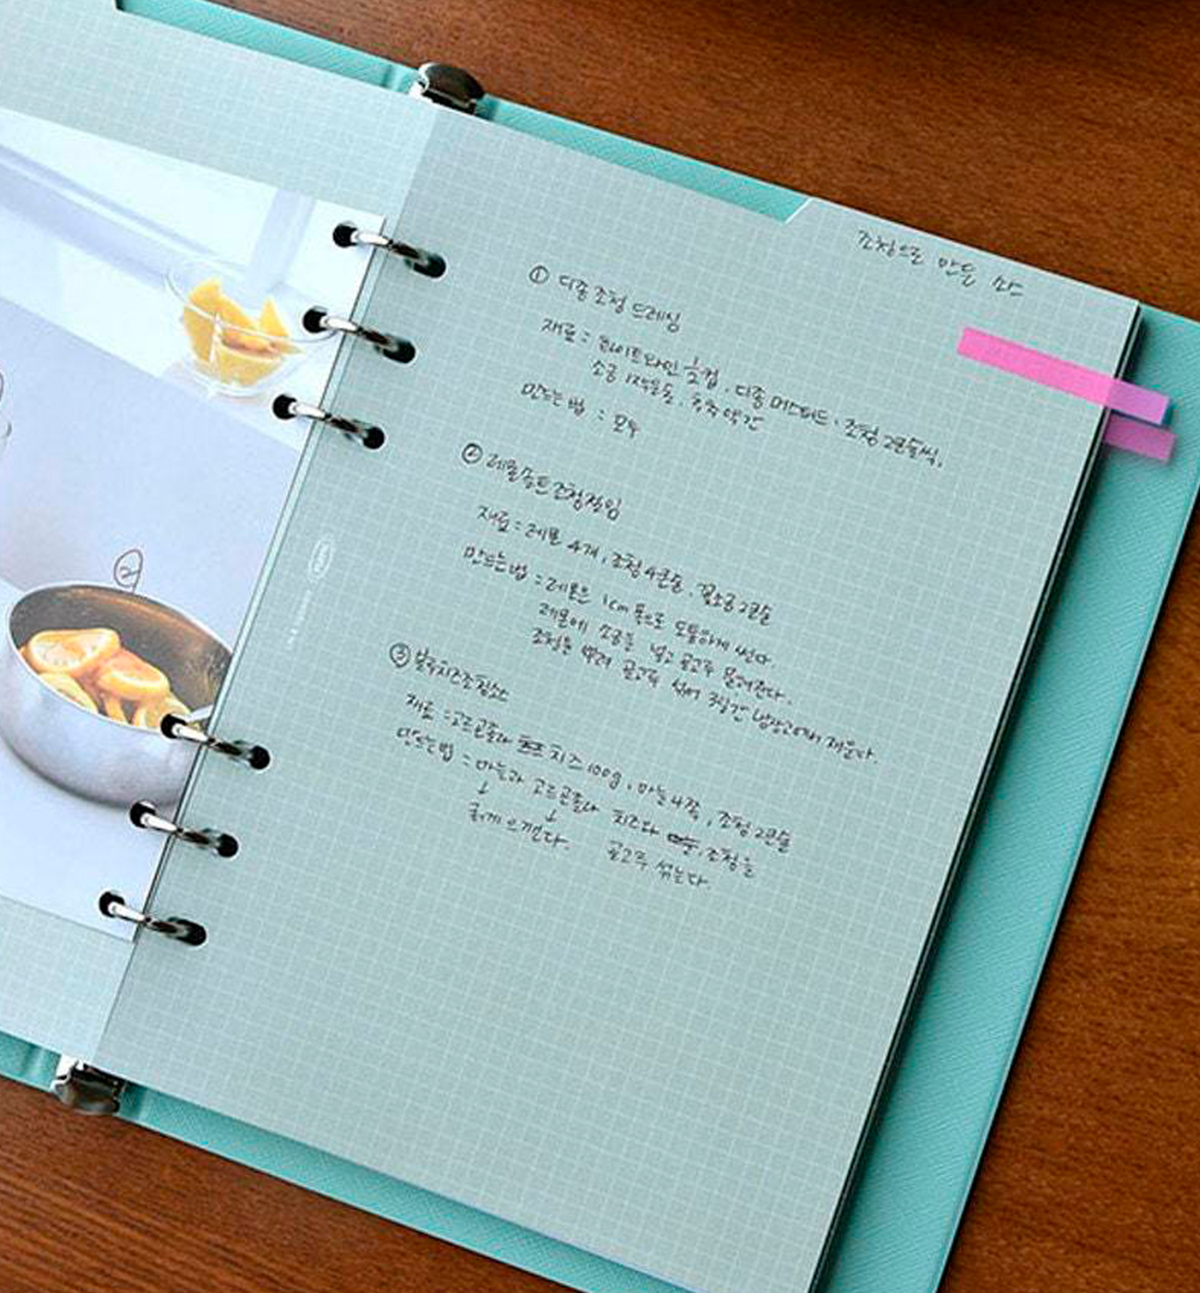 조청으로 만든 소스
① 디종 조청 드레싱
재료 : 화이트와인 ½컵, 디종 머스터드, 조청 2큰술씩,
소금 1작은술, 후추 약간
만드는법 :
② 레몬솔트 조청절임
재료 : 레몬 4개, 조청 4큰술, 꽃소금 2큰술
만드는법 : 레몬은 1cm 폭으로 도톰하게 썬다.
레몬에 소금을 넣고 골고루 문지른다.
조청을 뿌려 골고루 섞어 3일간 냉장고에서 재운다.
③ 블루치즈조청소스
재료 : 고르곤졸라 치즈 100g, 마늘 4쪽, 조청 2큰술
만드는법 : 마늘과 고르곤졸라 치즈와 조청을
↓ ↓
굵게 으깬다. 골고루 섞는다
②